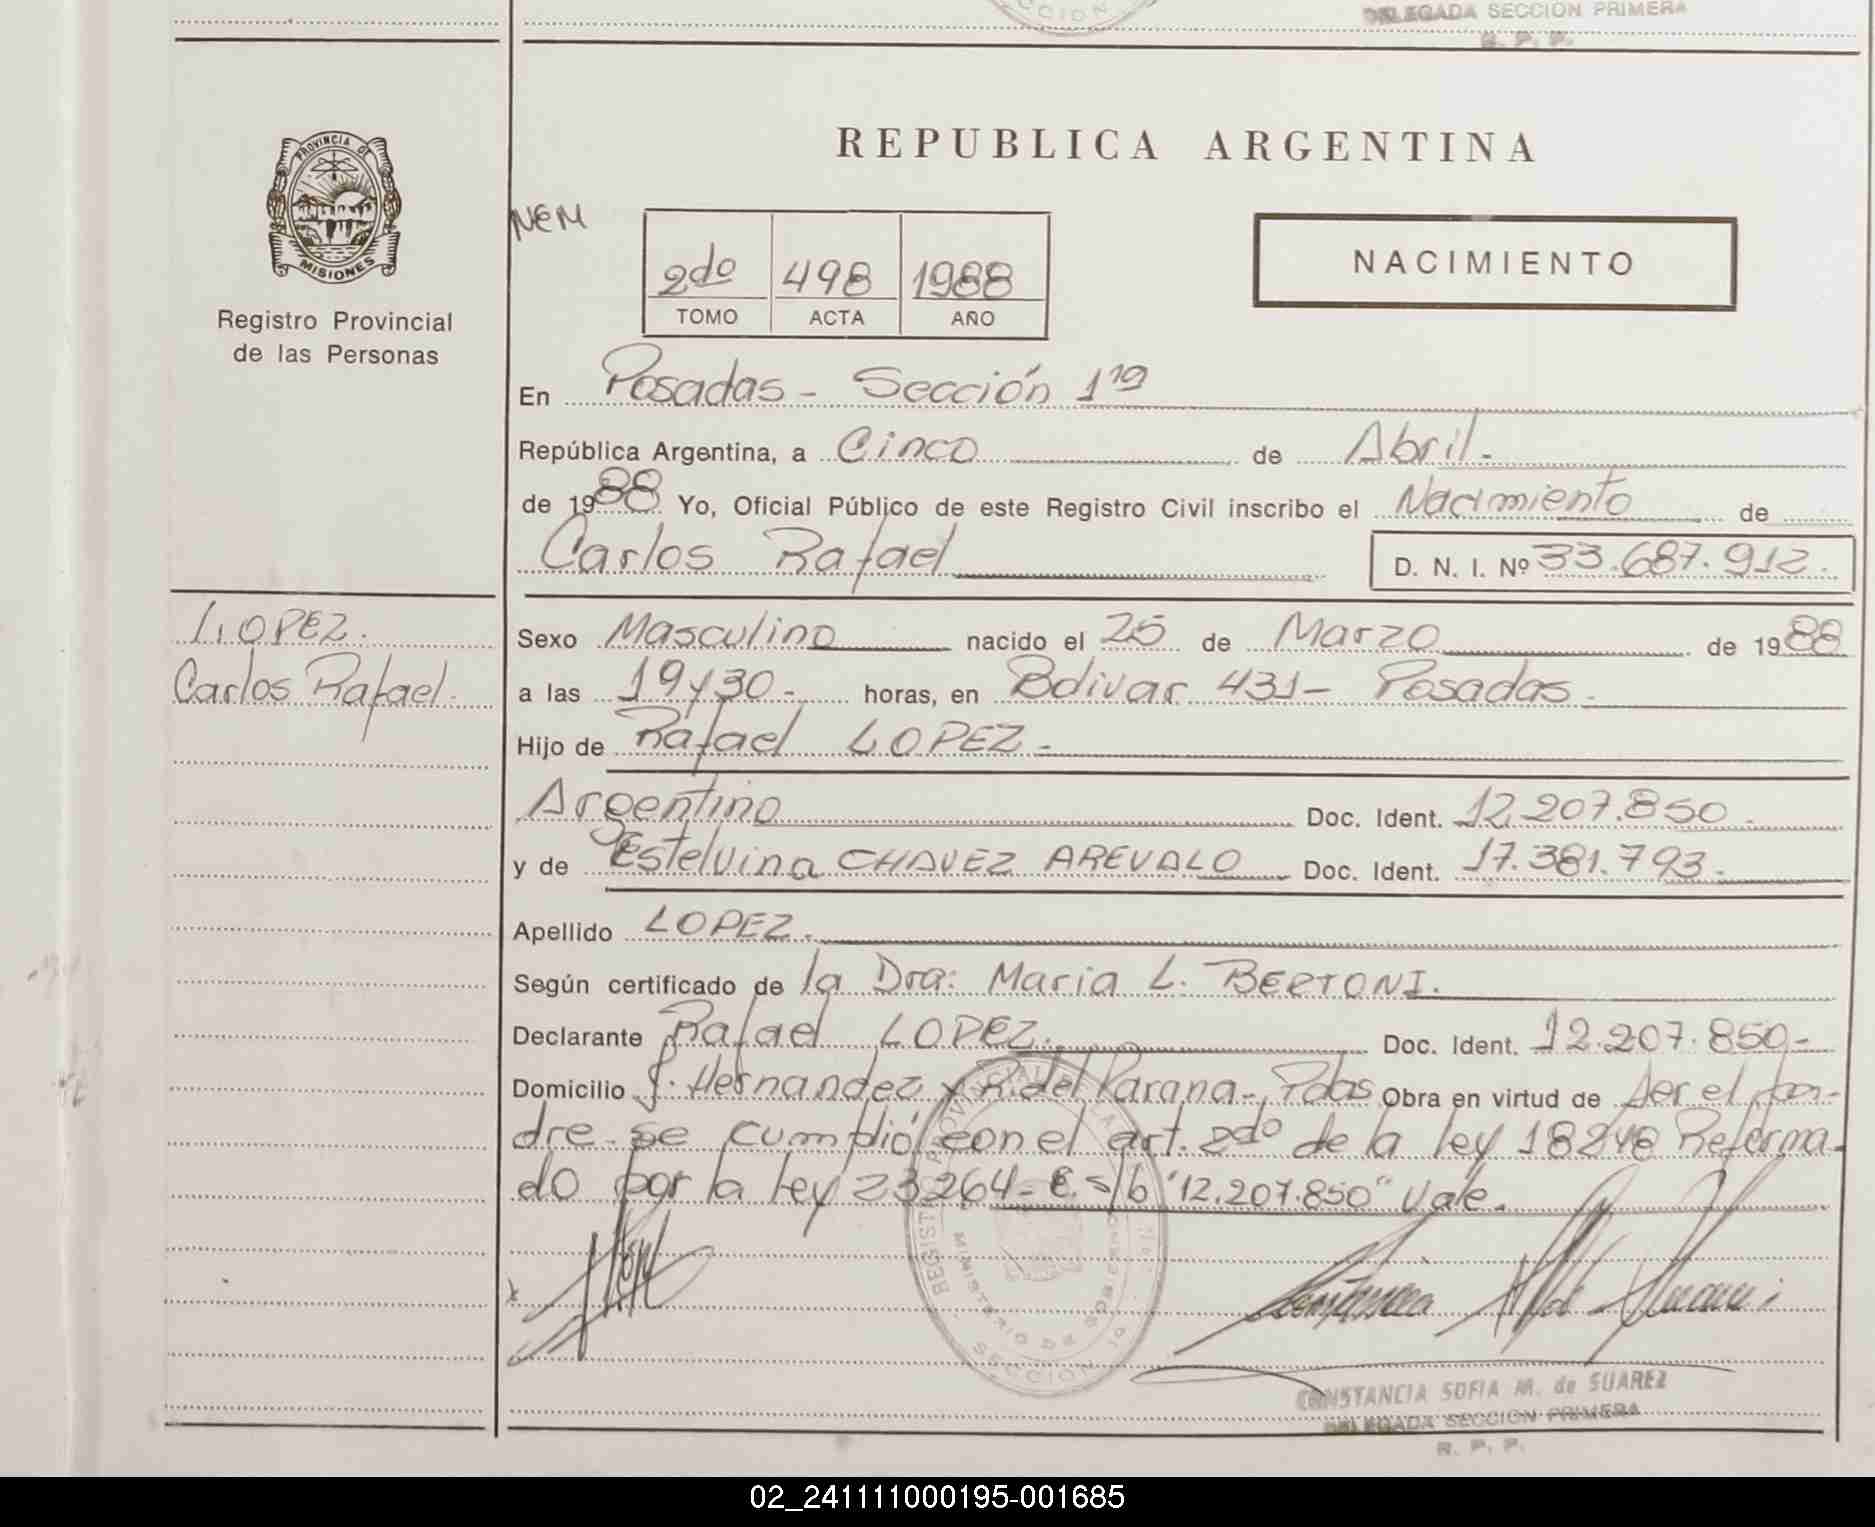 SECCION
DELEGADA SECCION PRIMERA
R. P. P.
PROVINCIA DE
MISIONES
Registro Provincial
de las Personas
REPUBLICA ARGENTINA
NEM
2do 498 1988
TOMO ACTA AÑO
NACIMIENTO
En Posadas - Sección 1ra
República Argentina, a Cinco de Abril.
de 1988 Yo, Oficial Público de este Registro Civil inscribo el Nacimiento de
Carlos Rafael D. N. I. Nº 33.687.912.
LOPEZ.
Carlos Rafael.
Sexo Masculino nacido el 25 de Marzo de 1988
a las 19 y 30 - horas, en Bolivar 431 - Posadas.
Hijo de Rafael LOPEZ -
Argentino Doc. Ident. 12.207.850 -
y de Estelvina CHAVEZ AREVALO Doc. Ident. 17.381.793 -
Apellido LOPEZ.
Según certificado de la Dra: Maria L. BERTONI.
Declarante Rafael LOPEZ. Doc. Ident. 12.207.850-
Domicilio J. Hernandez y R. del Parana-, Pdas Obra en virtud de ser el pa-
dre - se cumplió con el art. 2do de la ley 18248 Reforma-
do por la ley 23264 - E. s/b "12.207.850" Vale.
REGISTRO PROVINCIAL DE LAS
MINISTERIO DE GOBIERNO
SECCION 1a
CONSTANCIA SOFIA M. de SUAREZ
DELEGADA SECCION PRIMERA
R. P. P.
02_241111000195-001685